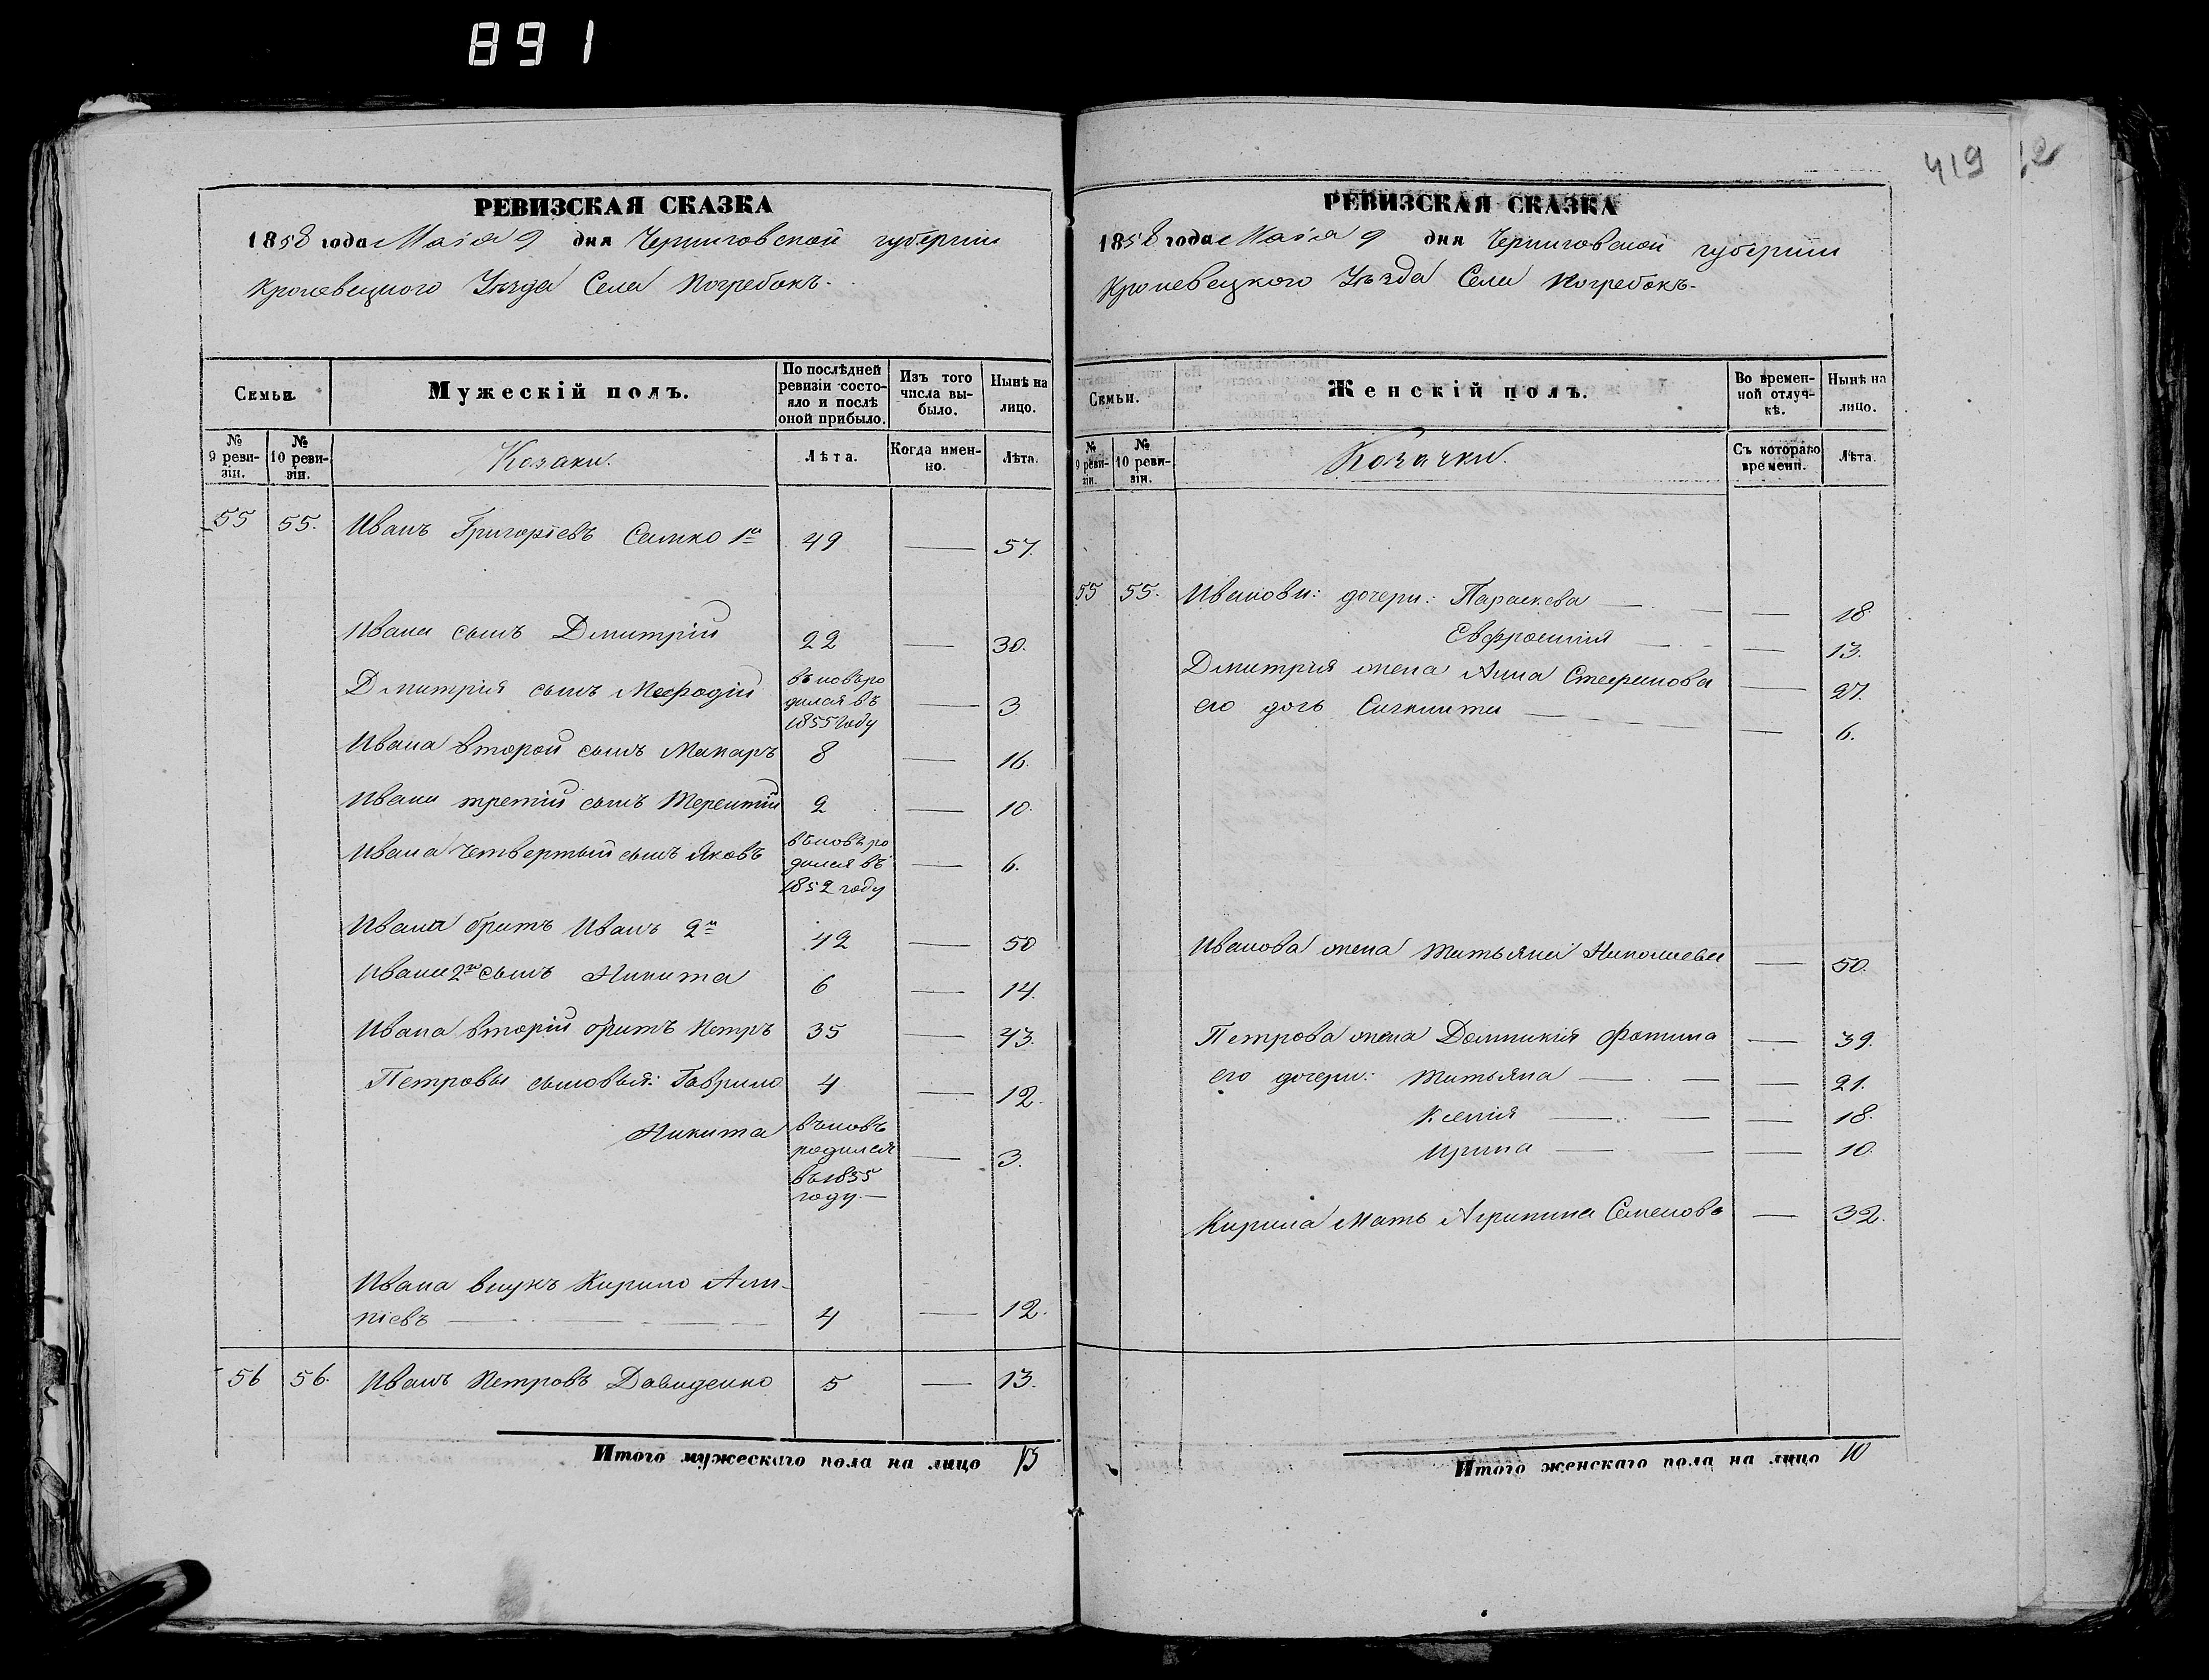 891
419
РЕВИЗСКАЯ СКАЗКА
1858 года Маія 9 дня Черниговской губерніи
Кролевецкого Уѣзда Села Погребокъ.
Семьи.
Мужескій полъ.
По послѣдней ревизіи состояло и послѣ оной прибыло.
Изъ того числа выбыло.
Нынѣ на лицо.
№ 9 ревизіи.
№ 10 ревизіи.
Козаки.
Лѣта.
Когда именно.
Лѣта.
55 55. Иванъ Григоріевъ Самко 1й 49 — 57.
Ивана сынъ Дмитрій 22 — 30.
Дмитрія сынъ Мефодій вновь родился въ 1855 году — 3
Ивана второй сынъ Макаръ 8 — 16.
Ивана третій сынъ Терентій 2 — 10.
Ивана четвертый сынъ Яковъ вновь родился въ 1852 году — 6.
Ивана братъ Иванъ 2й 42 — 50
Ивана 2го сынъ Никита 6 — 14.
Ивана вторій братъ Петръ 35 — 43.
Петровы сыновья: Гаврило 4 — 12.
Никита вновь родился въ 1855 году. — 3.
Ивана внукъ Кирило Али-
піевъ — 4 — 12.
56 56. Иванъ Петровъ Давиденко 5 — 13.
Итого мужескаго пола на лицо 13
РЕВИЗСКАЯ СКАЗКА
1858 года Маія 9 дня Черниговской губерніи
Кролевецкого Уѣзда Села Погребокъ.
Семьи.
Женскій полъ.
Во временной отлучкѣ.
Нынѣ на лицо.
№ 9 ревизіи.
№ 10 ревизіи.
Козачки.
Съ котораго времени.
Лѣта.
55 55. Ивановы: дочери: Параскева — — 18
Евфросинія — — 13.
Дмитрія жена Анна Стефанова — 27.
его дочь — — 6.
Иванова жена Татьяна Николаева — 50.
Петрова жена Домникія Фотина — 39.
его дочери: Татьяна — — 21.
Ксенія — — 18.
Ирина — — 10.
Кирила Мать Агрипина Семенова — 32.
Итого женскаго пола на лицо 10